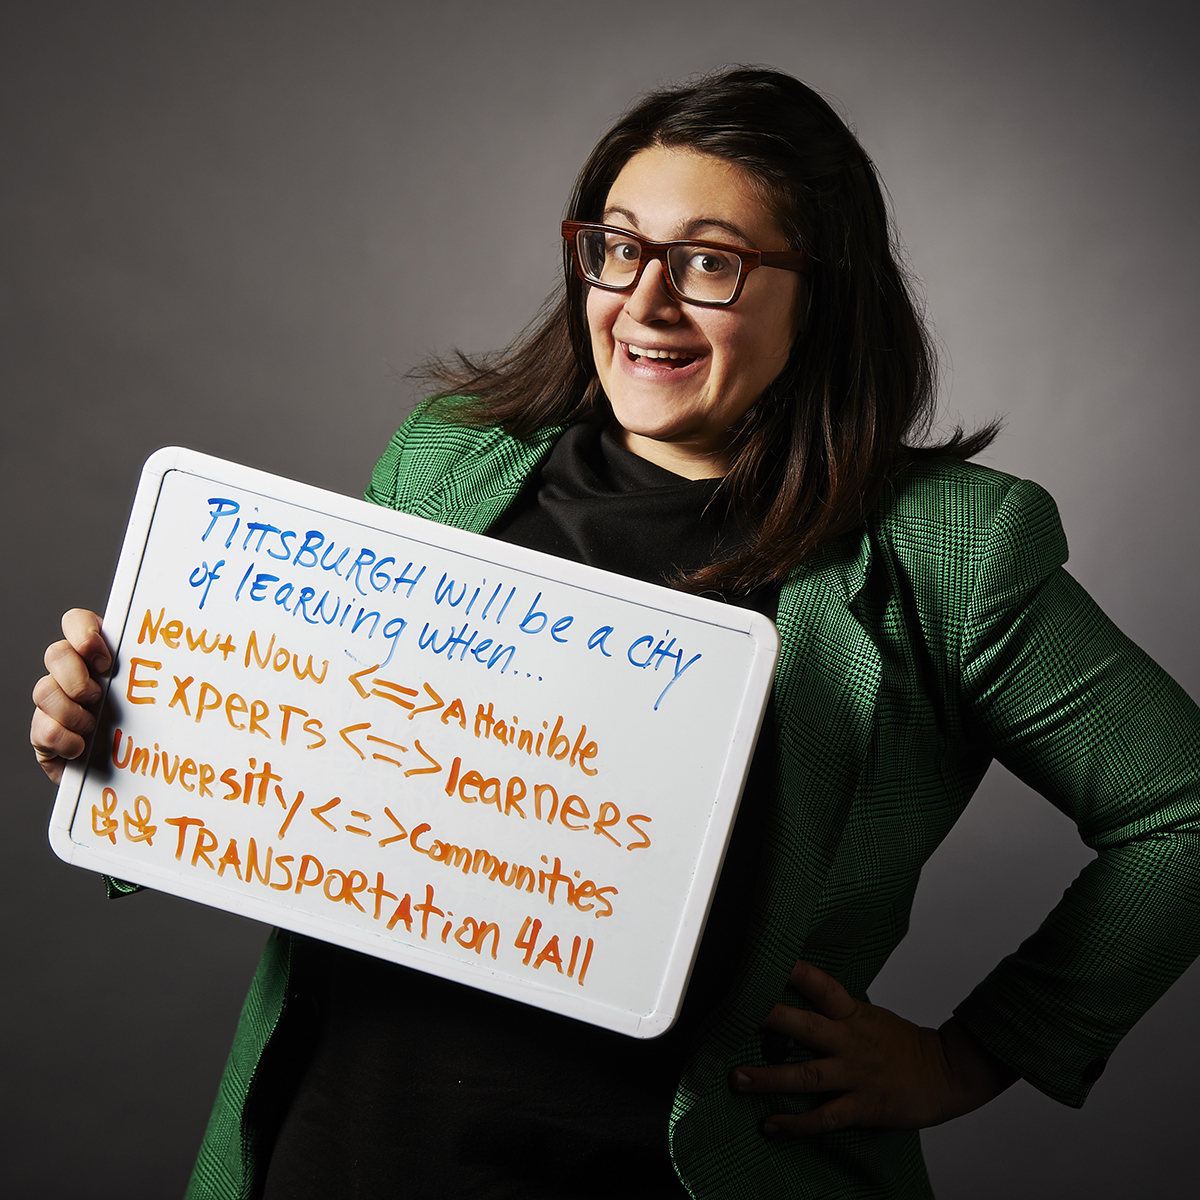 PITTSBURGH will be a city
of learning when...
New+Now <=> Attainible
Experts <=> learners
University <=> Communities
&& TRANSPORTATION 4All